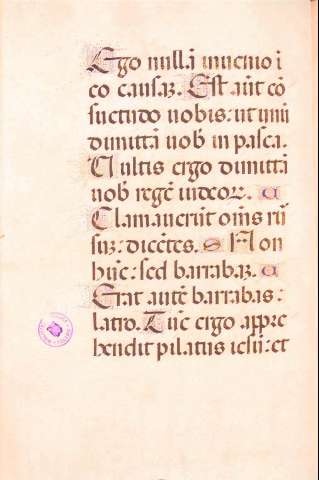 Ego nullā inuenio i
co causaʒ. Est aūt cō
suetudo uobis: ut unū
dimittā uob in pasca.
Vultis ergo dimittā
uob regē iudeoꝝ.
Clamauerūt om̄s rū
suʒ: dicētes. Non
hūc: sed barrabaʒ.
Erat autē barrabas:
latro. Tūc ergo appre
hendit pilatus iesū: et